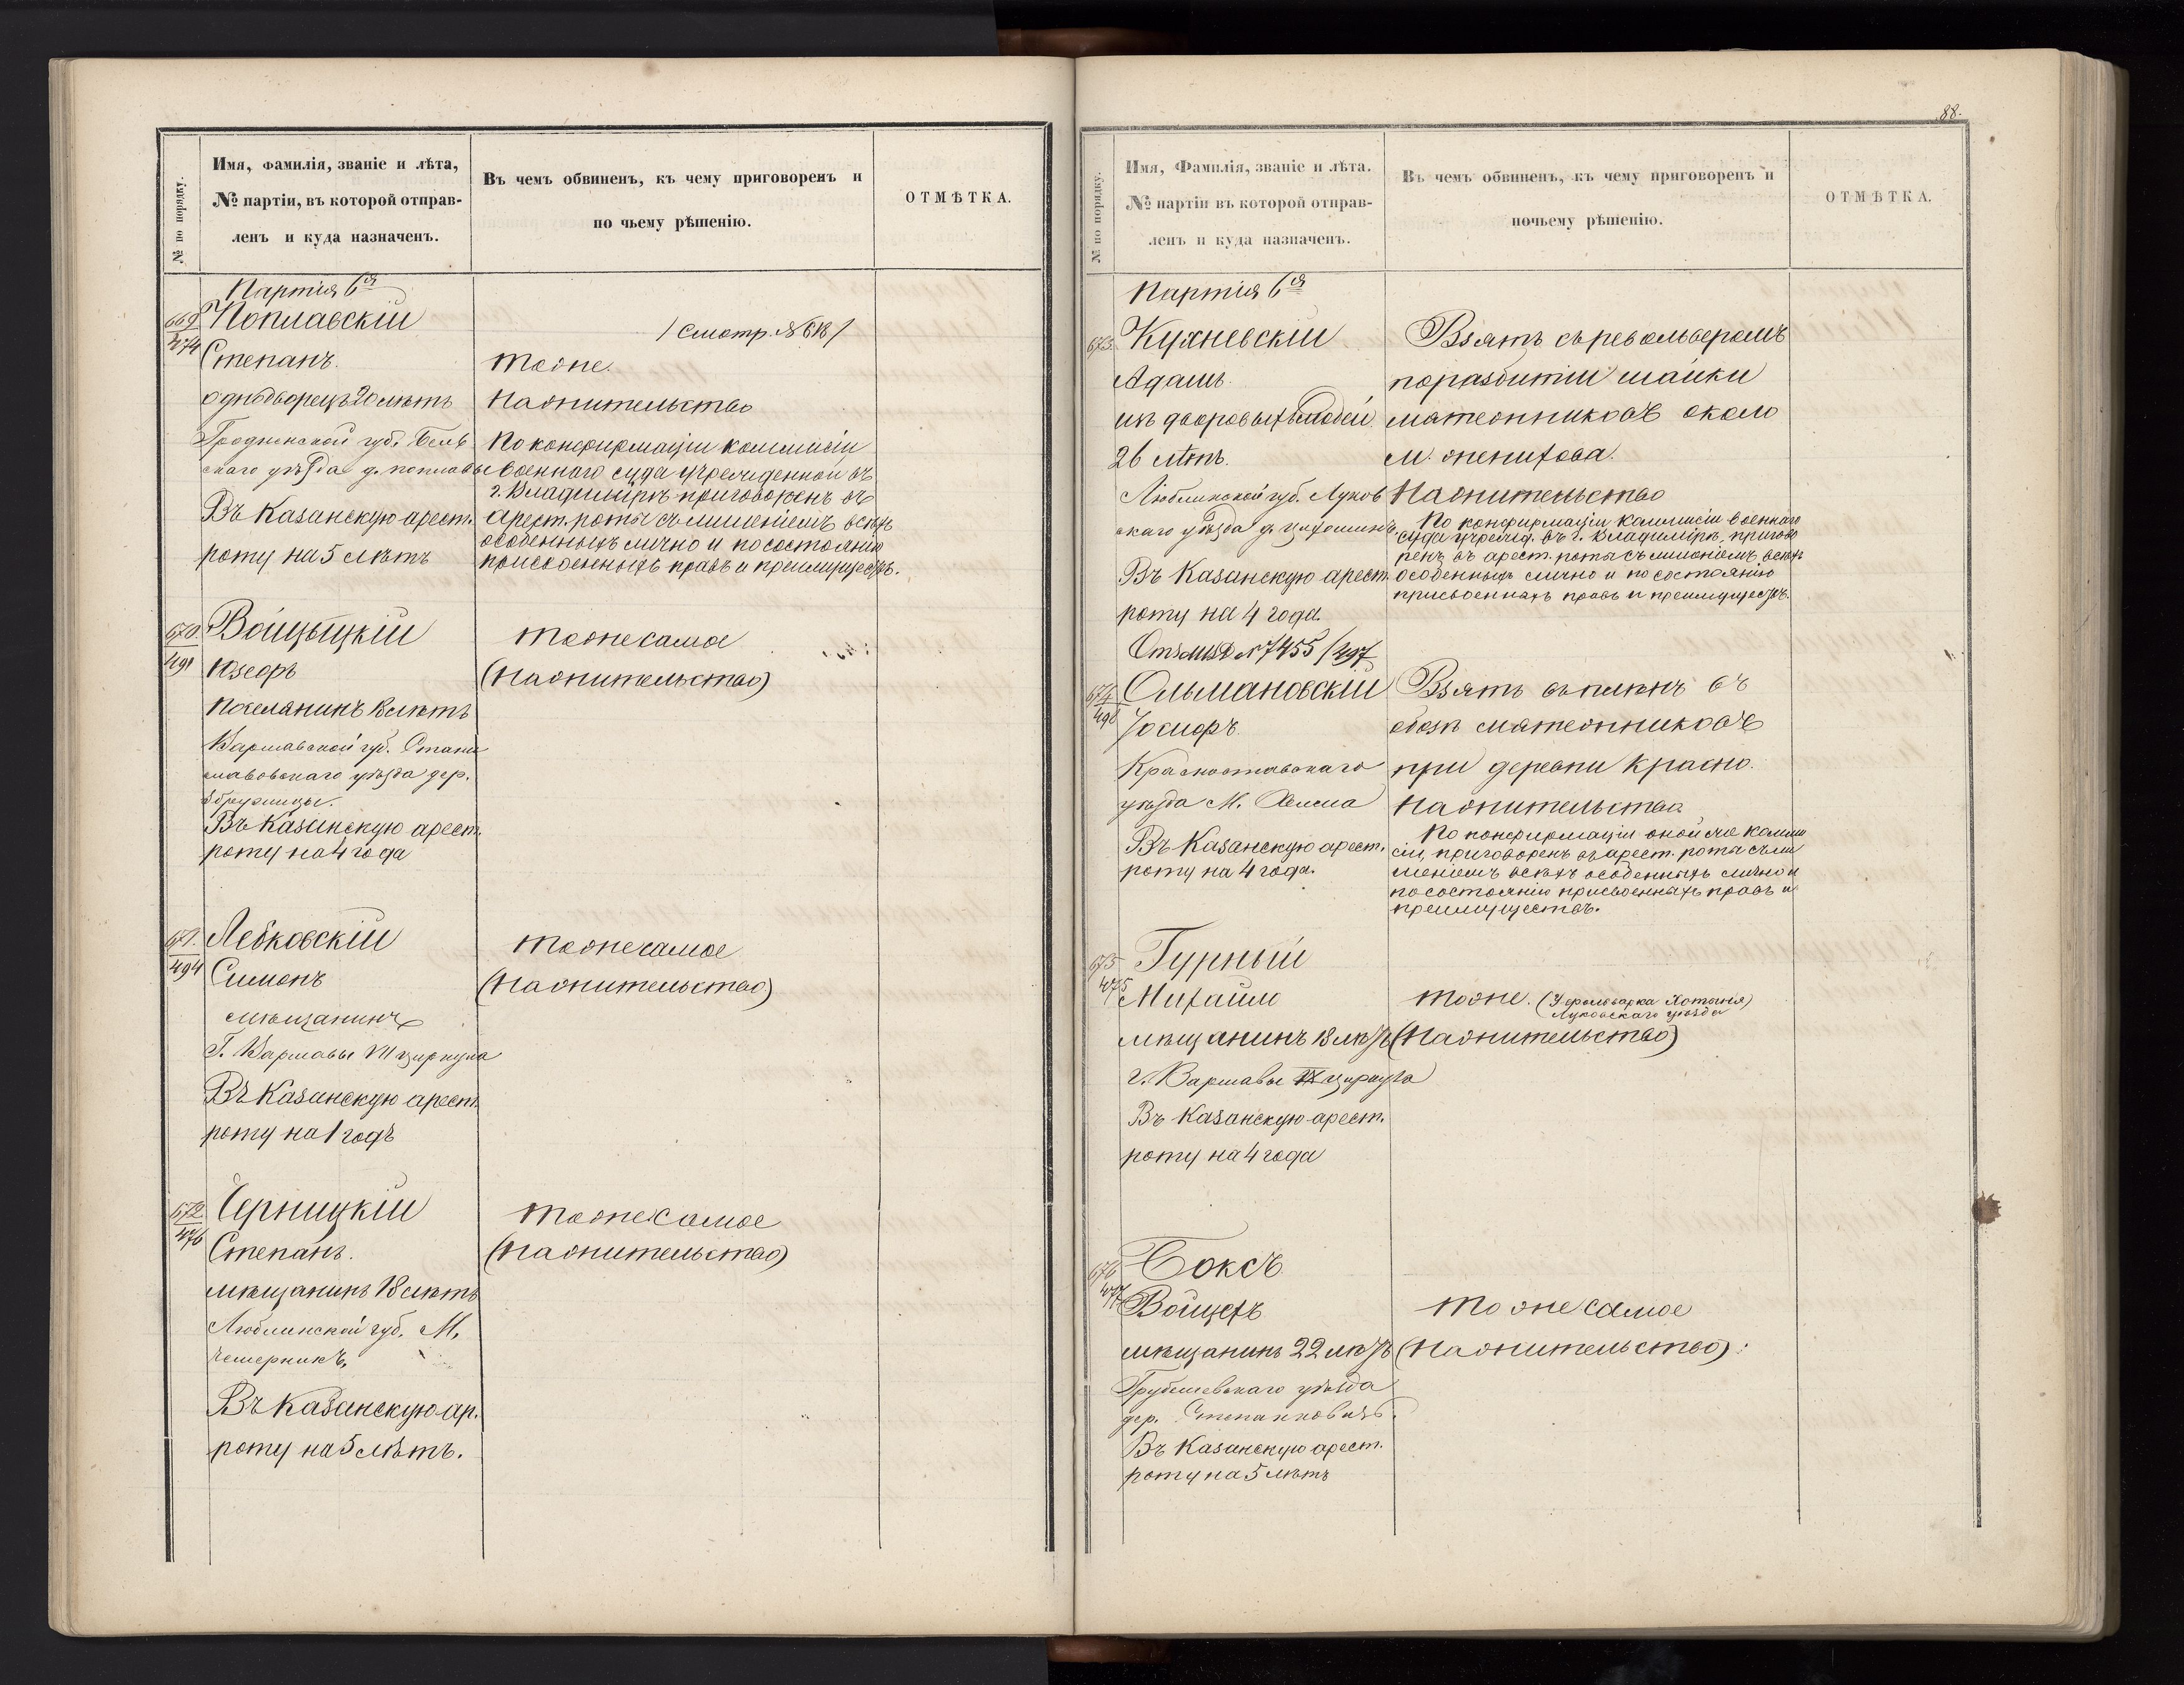 № по порядку.
Имя, фамилія, званіе и лѣта,
№ партіи, въ которой отправ-
ленъ и куда назначенъ.
Въ чемъ обвиненъ, къ чему приговоренъ и
по чьему рѣшенію.
ОТМѢТКА.
Партія 6ая
669
474
Поплавскій
/Смотр. №618/
Степанъ.
тоже.
однодворецъ 20 лѣтъ
На жительство
Гродненской губ. Бель
скаго уѣзда д. поплавы
По конфирмаціи коммисіи
военнаго суда учрежденной въ
г. Владимірѣ приговоренъ въ
Въ Казанскую арест.
арест. роты съ лишеніемъ всѣхъ
особенныхъ лично и по состоянію
роту на 5 лѣтъ
присвоенныхъ правъ и преимуществъ.
670.
491
Войцыцкій
тоже самое
Юзефъ
(на жительство)
поселянинъ лѣтъ
Варшавской губ. Стани
славовскаго уѣзда дер.
Въ Казанскую арест.
роту на 4 года
671.
494
Лебковскій
тоже самое
Симонъ
(на жительство)
мѣщанинъ
Г. Варшавы VII циркула
Въ Казанскую арест.
роту на 1 годъ
672
476
Черницкій
тоже самое
Степанъ.
(на жительство)
мѣщанинъ 18 лѣтъ
Люблинской губ. М.
Чемерникъ,
Въ Казанскую ар.
роту на 5 лѣтъ.
88.
№ по порядку.
Имя, Фамилія, званіе и лѣта.
№ партіи въ которой отправ-
ленъ и куда назначенъ.
Въ чемъ обвиненъ, къ чему приговоренъ и
почьему рѣшенію.
ОТМѢТКА.
Партія 6ая
673.
Кухневскій
Взятъ съ револьверомъ
Адамъ.
по разбитіи шайки
изъ дворовыхъ людей.
мятежниковъ около
26 лѣтъ.
м. женихова.
Люблинской губ. Луков
На жительство
скаго уѣзда д.
По конфирмаціи коммисіи военнаго
суда учрежд. въ г. Владимірѣ, пригово
ренъ въ арест. роты съ лишеніемъ, всѣхъ
Въ Казанскую арест.
особенныхъ лично и по состоянію
присвоенныхъ правъ и преимуществъ.
роту на 4 года.
№7455/497
674
498
Ольмановскій
Взятъ въ плѣнъ въ
Іосифъ.
обозѣ мятежниковъ
Красноставскаго
при деревни Красно.
уѣзда М. Хелма
На жительство
По конфирмаціи оной же комми
Въ Казанскую арест.
сіи, приговоренъ въ арест. роты съ ли
роту на 4 года.
шеніемъ всѣхъ особенныхъ лично и
по состоянію присвоенныхъ правъ и
преимуществъ.
675
475
Гурный
Михаилъ
тоже. (У фольварка Хотыня)
Луковскаго уѣзда
мѣщанинъ 18 лѣтъ
(На жительство)
г. Варшавы IX циркула
Въ Казанскую арест.
роту на 4 года
676
477
Боксъ
Войцехъ
тоже самое
мѣщанинъ 22 лѣтъ
(На жительство):
Грубешевскаго уѣзда
дер. Степанковицъ.
Въ Казанскую арест.
роту на 5 лѣтъ